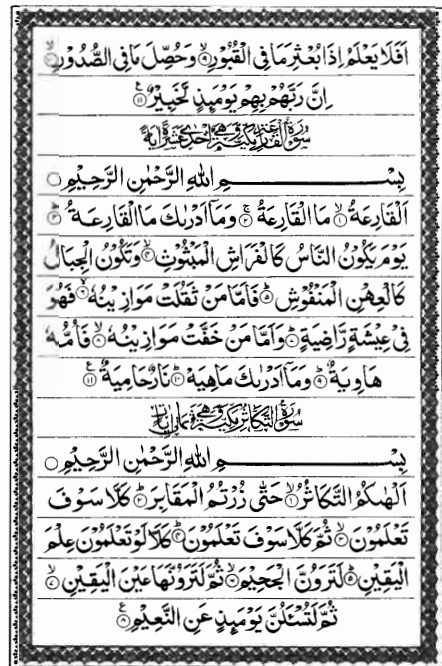 اَفَلَا يَعْلَمُ اِذَا بُعْثِرَ مَا فِى الْقُبُوْرِ ۙ۹ وَحُصِّلَ مَا فِى الصُّدُوْرِ ۙ۱۰
اِنَّ رَبَّهُمْ بِهِمْ يَوْمَئِذٍ لَّخَبِيْرٌ ۱۱
سُوْرَةُ الْقَارِعَةِ مَكِّيَّةٌ وَّهِيَ اِحْدٰى عَشْرَةَ اٰيَةً
بِسْمِ اللهِ الرَّحْمٰنِ الرَّحِيْمِ
اَلْقَارِعَةُ ۙ۱ مَا الْقَارِعَةُ ۚ۲ وَمَآ اَدْرٰىكَ مَا الْقَارِعَةُ ؕ۳
يَوْمَ يَكُوْنُ النَّاسُ كَالْفَرَاشِ الْمَبْثُوْثِ ۙ۴ وَتَكُوْنُ الْجِبَالُ
كَالْعِهْنِ الْمَنْفُوْشِ ؕ۵ فَاَمَّا مَنْ ثَقُلَتْ مَوَازِيْنُهٗ ۙ۶ فَهُوَ
فِىْ عِيْشَةٍ رَّاضِيَةٍ ؕ۷ وَاَمَّا مَنْ خَفَّتْ مَوَازِيْنُهٗ ۙ۸ فَاُمُّهٗ
هَاوِيَةٌ ؕ۹ وَمَآ اَدْرٰىكَ مَاهِيَهْ ؕ۱۰ نَارٌ حَامِيَةٌ ۱۱
سُوْرَةُ التَّكَاثُرِ مَكِّيَّةٌ وَّهِيَ ثَمَانُ اٰيَاتٍ
بِسْمِ اللهِ الرَّحْمٰنِ الرَّحِيْمِ
اَلْهٰىكُمُ التَّكَاثُرُ ۙ۱ حَتّٰى زُرْتُمُ الْمَقَابِرَ ؕ۲ كَلَّا سَوْفَ
تَعْلَمُوْنَ ۙ۳ ثُمَّ كَلَّا سَوْفَ تَعْلَمُوْنَ ؕ۴ كَلَّا لَوْ تَعْلَمُوْنَ عِلْمَ
الْيَقِيْنِ ؕ۵ لَتَرَوُنَّ الْجَحِيْمَ ۙ۶ ثُمَّ لَتَرَوُنَّهَا عَيْنَ الْيَقِيْنِ ۙ۷
ثُمَّ لَتُسْئَلُنَّ يَوْمَئِذٍ عَنِ النَّعِيْمِ ۸